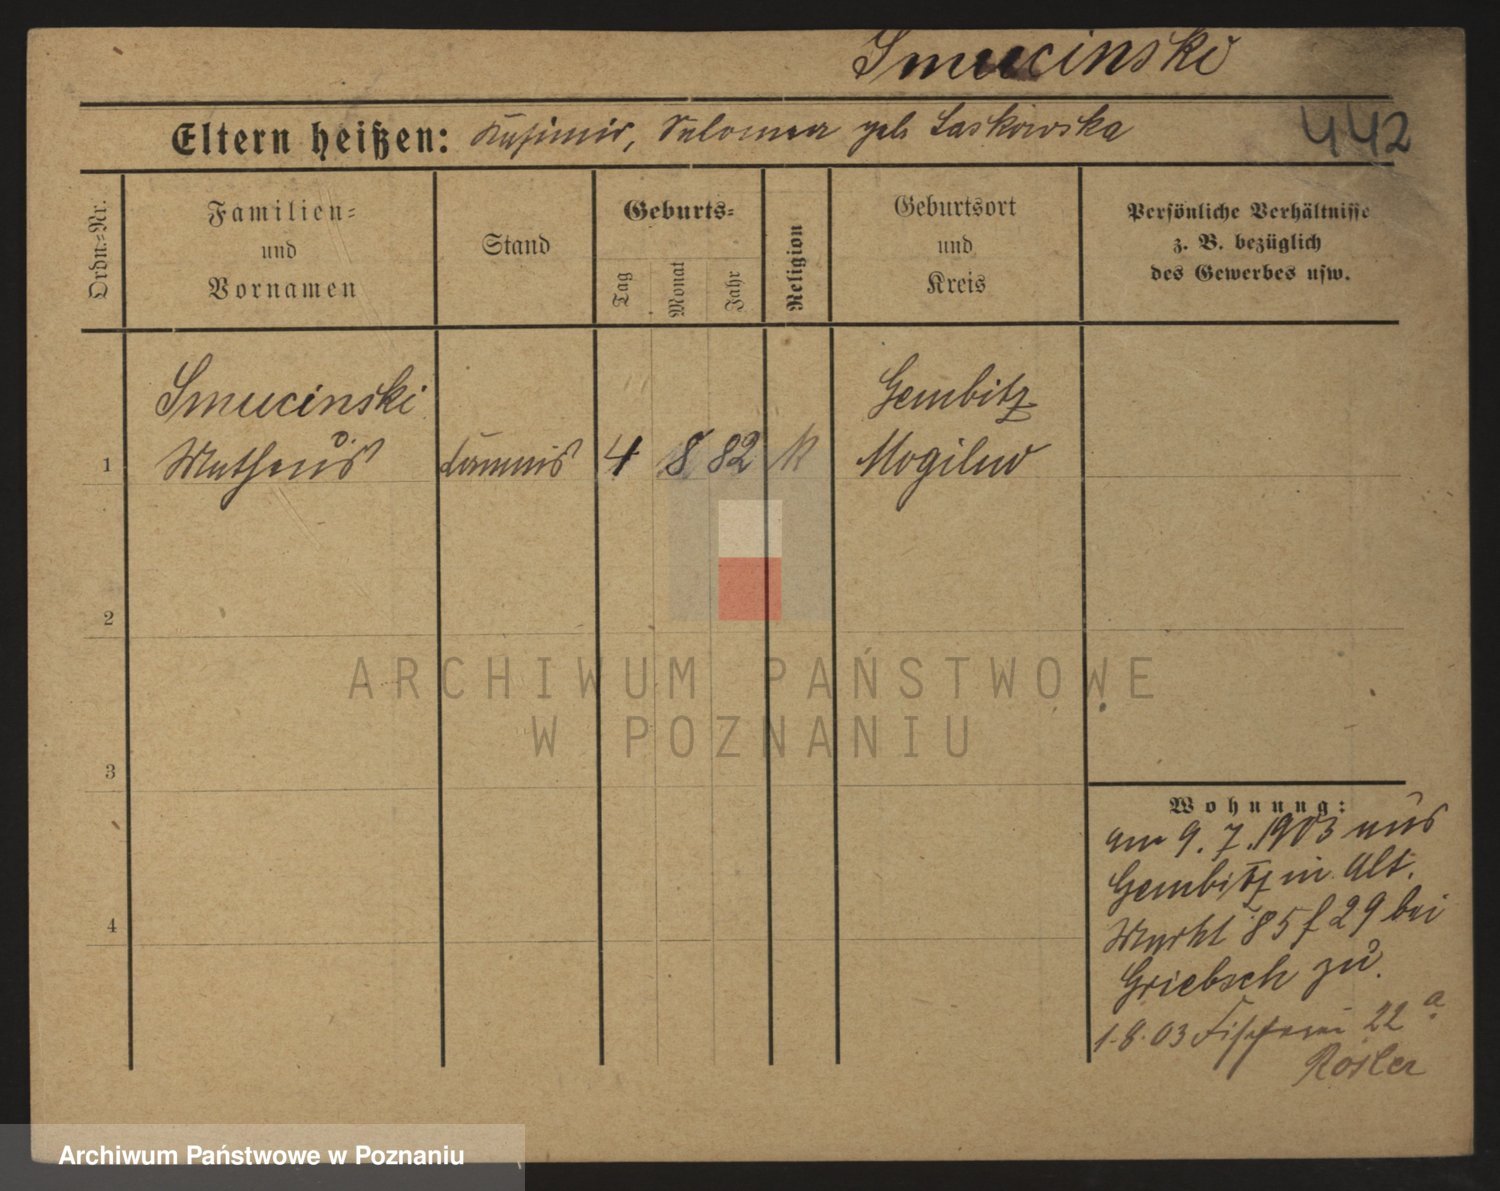 Smucinski
Eltern heißen: Kasimir, Salomea geb Laskowska
442
Ordn.=Nr.
Familien=
und
Vornamen
Stand
Geburts=
Tag
Monat
Jahr
Religion
Geburtsort
und
Kreis
Persönliche Verhältnisse
z. B. bezüglich
des Gewerbes usw.
Smucinski
Gembitz
1 Matheus 4 8 82 K Mogilno
2
3
4
Wohnung:
am 9. 7. 1903 aus
Gembitz in Alt.
Markt 85 f 29 bei
Griebsch zu.
1.8.03 Fischerei 22 a
Rösler
ARCHIWUM PAŃSTWOWE
W POZNANIU
Archiwum Państwowe w Poznaniu